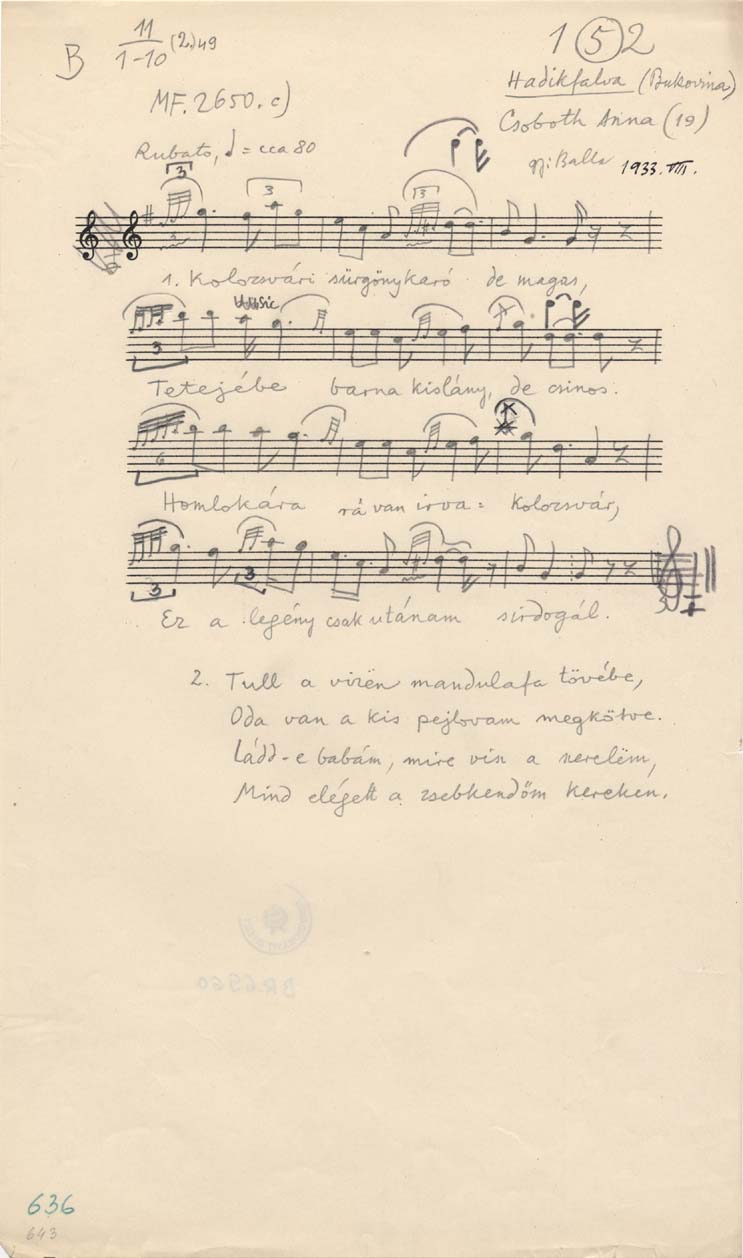 B 11/1-10 (2.)49
1 5 2
MF. 2650. c)
Hadikfalva (Bukovina)
Csoboth Anna (19)
Rubato, ♩= cca 80
gy: Balla 1933. VIII.
3
3
3
1. Kolozsvári sürgönykaró de magas,
sic
3
Tetejébe barna kislány, de csinos.
6
Homlokára rá van irva: Kolozsvár,
3
3
Ez a legény csak utánam sirdogál.
2. Tull a vizën mandulafa tövébe,
Oda van a kis pejlovam megkötve.
Ládd-e babám, mire visz a szerelëm,
Mind elégett a zsebkendőm kereken.
BR 6960
636
643